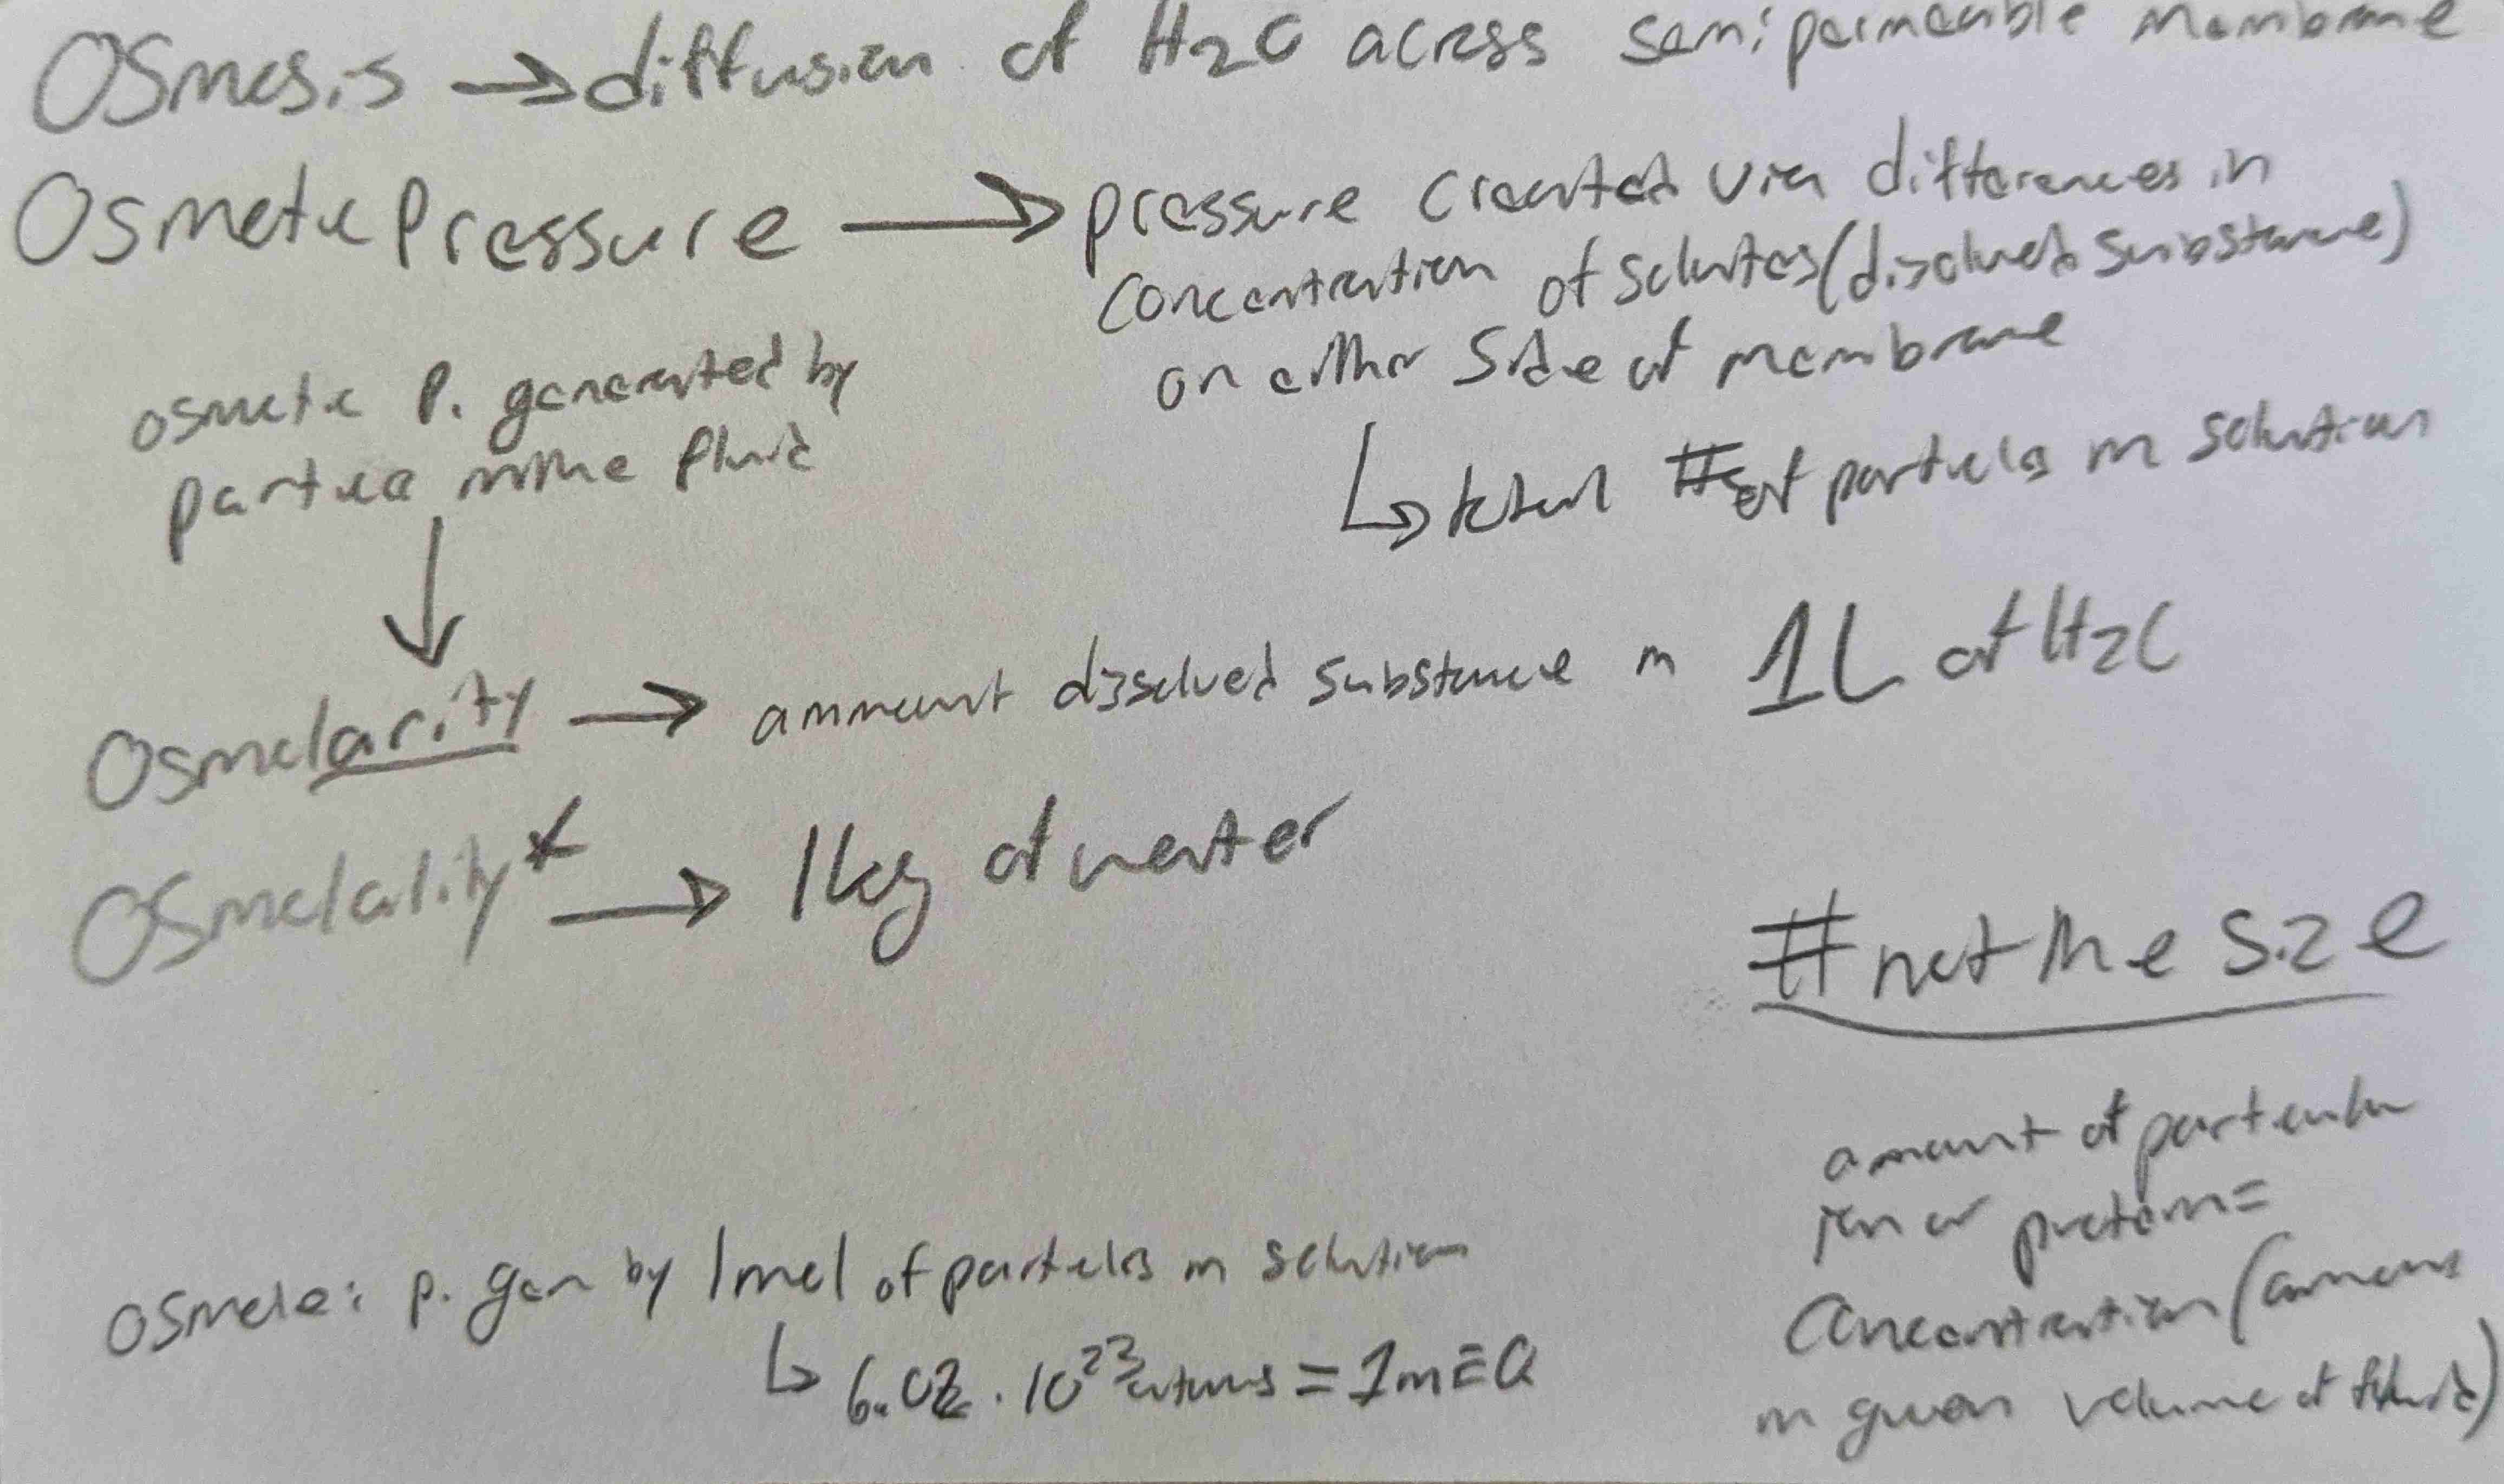 Osmosis → diffusion of H2O across semipermeable membrane
Osmotic Pressure → pressure created via differences in
concentration of solutes (disolved substance)
on either side of membrane
↳ total # of particles in solution
osmotic P. generated by
partica in the fluid
↓
Osmolarity → ammount dissolved substance in 1L of H2O
Osmolality* → 1kg of water
# not the size
amount of particular
ion or protein =
Concentration (amount
in given volume of fluid)
osmole: p. gen by 1mol of particles in solution
↳ 6.02 · 10²³ atoms = 1mEQ